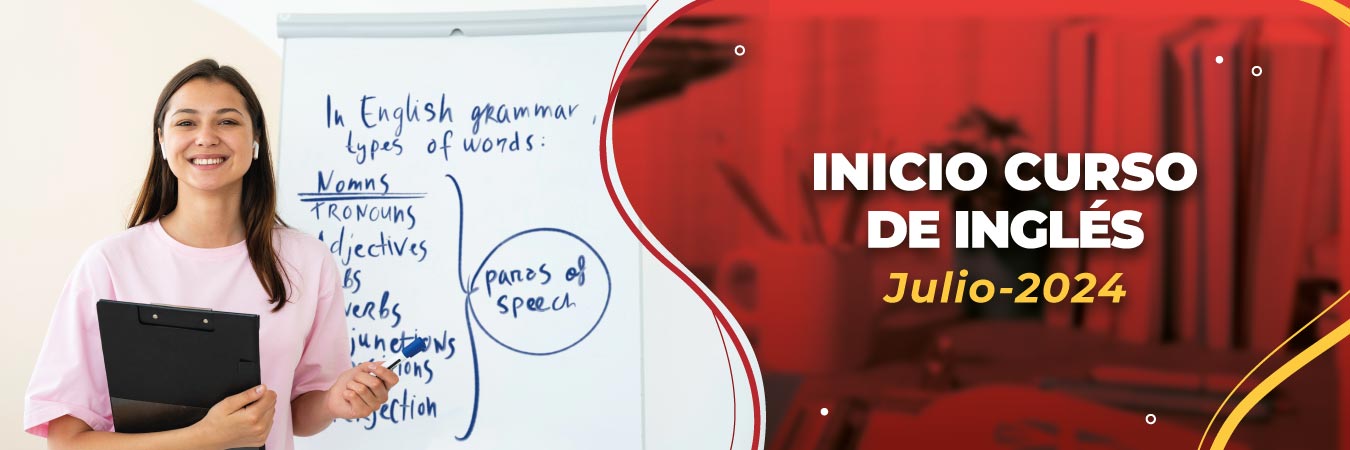 In English grammar,
types of words:
Nomns
PRONOUNS
djectives
bs
verbs
junctions
ions
jection
parts of
speech
INICIO CURSO
DE INGLÉS
Julio-2024